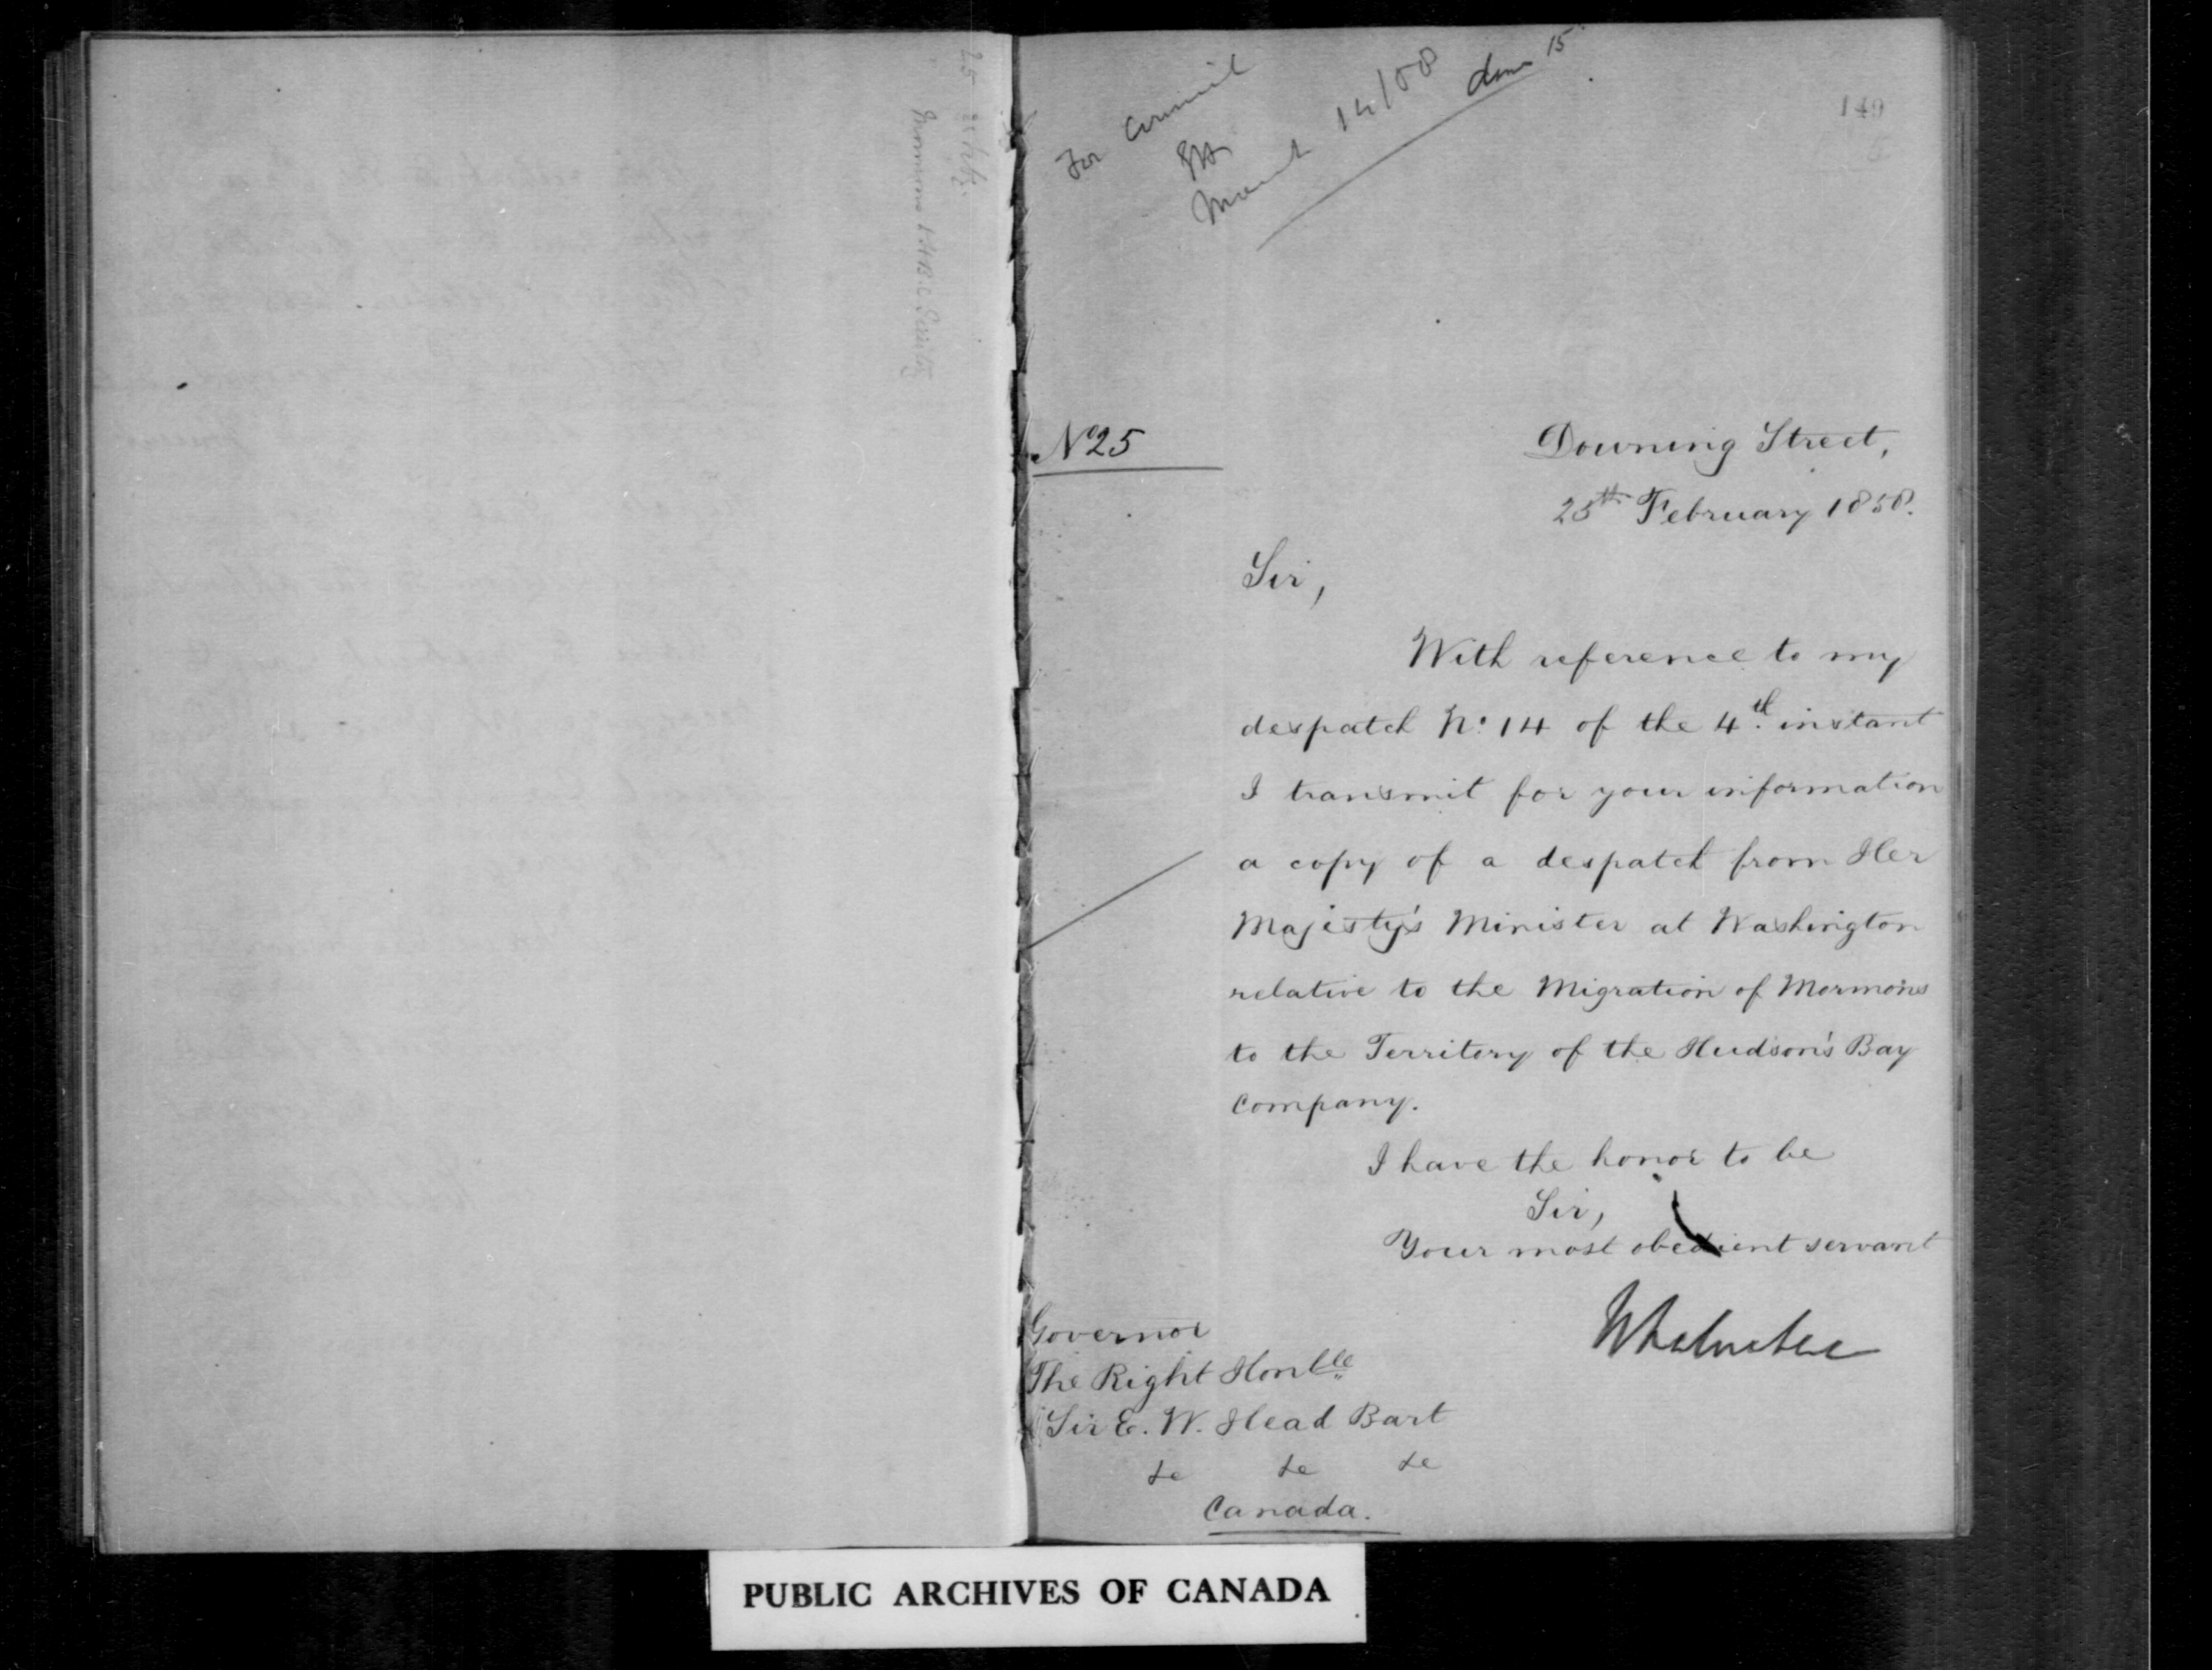 For Council
EH
March 14/58 done 15
149
No 25
Downing Street,
25th February 1858.
Sir,
With reference to my
despatch No. 14 of the 4th instant
I transmit for your information
a copy of a despatch from Her
Majesty's Minister at Washington
relative to the Migration of Mormons
to the Territory of the Hudson's Bay
Company.
I have the honor to be
Sir,
Your most obedient servant
Governor
The Right Honble
Sir E. W. Head Bart
&c &c &c
Canada.
PUBLIC ARCHIVES OF CANADA